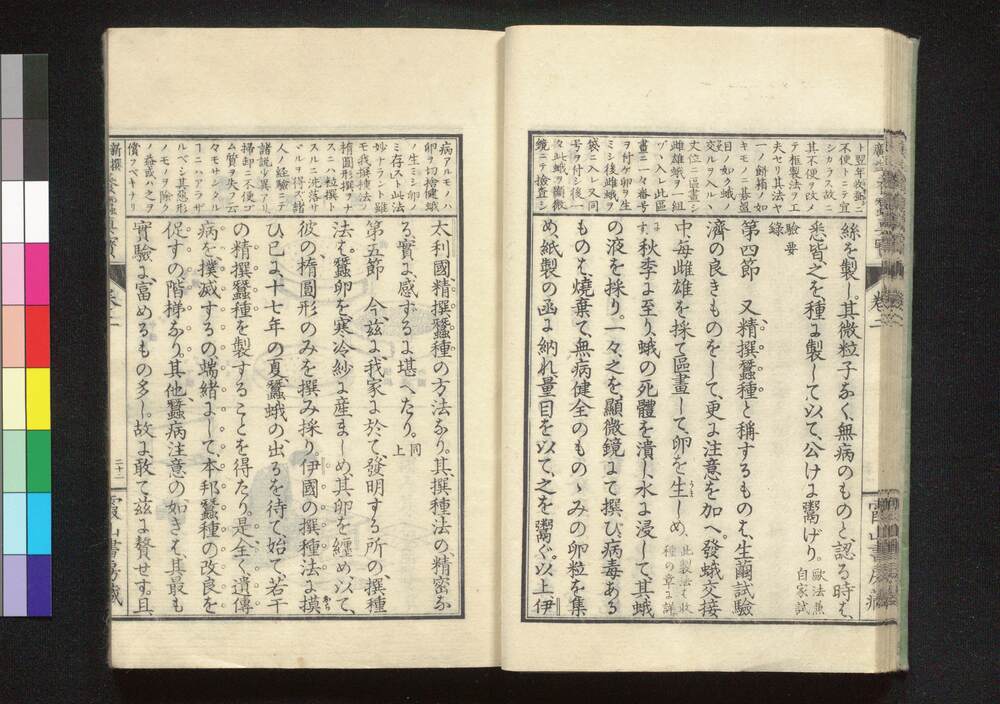 ト翌年收蠶ニ
不便トニテ宜
シカラス故ニ
其不便ヲ改メ
テ框製法ヲ工
夫セリ其法ヤ
一ノ餅箱ノ如
キモノニ碁盤
目ノ如ク蛾ノ
交ルヲ入ルヽ
丈位ニ區畫シ
雌雄蛾ヲ一組
ヅヽ入レ此區
畫ニ一々番号
ヲ付ケ卵ヲ生
ミシ後雌蛾ヲ
袋ニ入レ又同
号ヲ付シ後一
々此蛾ヲ顕微
鏡ニテ撿査シ
絲を製し。其微粒子なく、無病のものと、認る時は、
悉皆、之を、種に製して、以て、公けに鬻げり。歐法兼自家試
驗要
錄
第四節　又、精撰蠶種と稱するものは、生繭試驗
濟の良きものをして、更に注意を加へ、發蛾交接
中、毎雌雄を採て、區畫して、卵を生しめ、此製法は收種の章に詳
に秋季に至り、蛾の死體を潰し、水に浸して、其蛾
の液を採り、一々、之を、顯微鏡にて撰び、病毒ある
ものは、燒棄て、無病健全のものゝみの卵粒を集
め、紙製の函に納れ、量目を以て、之を鬻ぐ。以上、伊
卷二
病アルモノハ
卵ヲ切捨健蛾
ノ生ミシ卵ノ
ミ存スト此法
妙ナラント雖
モ我撰種法ノ
楕圓形撰ヲナ
スニハ粒撰ト
スルニ洗落サ
ヾルヲ得ズ諸
人ノ經驗ニテ
諸説少異アリ
掃卸ニ不便ゴ
ム質ヲ失フ云
々モサシタル
コニハアラザ
ルベシ其惡形
ノモノヲ除ク
ノ益或ハ之ヲ
償フベキナリ
太利國、精撰蠶種の方法なり。其撰種法の精密な
る、實に、感ずるに堪へたり。同上
第五節　今、茲に、我家に於て、發明する所の撰種
法は、蠶卵を寒冷紗に産ましめ、其卵を纏め、以て、
彼の、楕圓形のみを撰み採り。伊國の撰種法に摸
ひ、已に、十七年の夏、蠶蛾の、出るを待て、始て、若干
の精撰蠶種を製することを得たり。是、全く、遺傳
病を撲滅するの、端緒にして、本邦蠶種の改良を
促すの階梯なり。其他、蠶病注意の如きは、其最も
實驗に、富めるもの多し。故に、敢て、茲に贅せず。且、
二十二